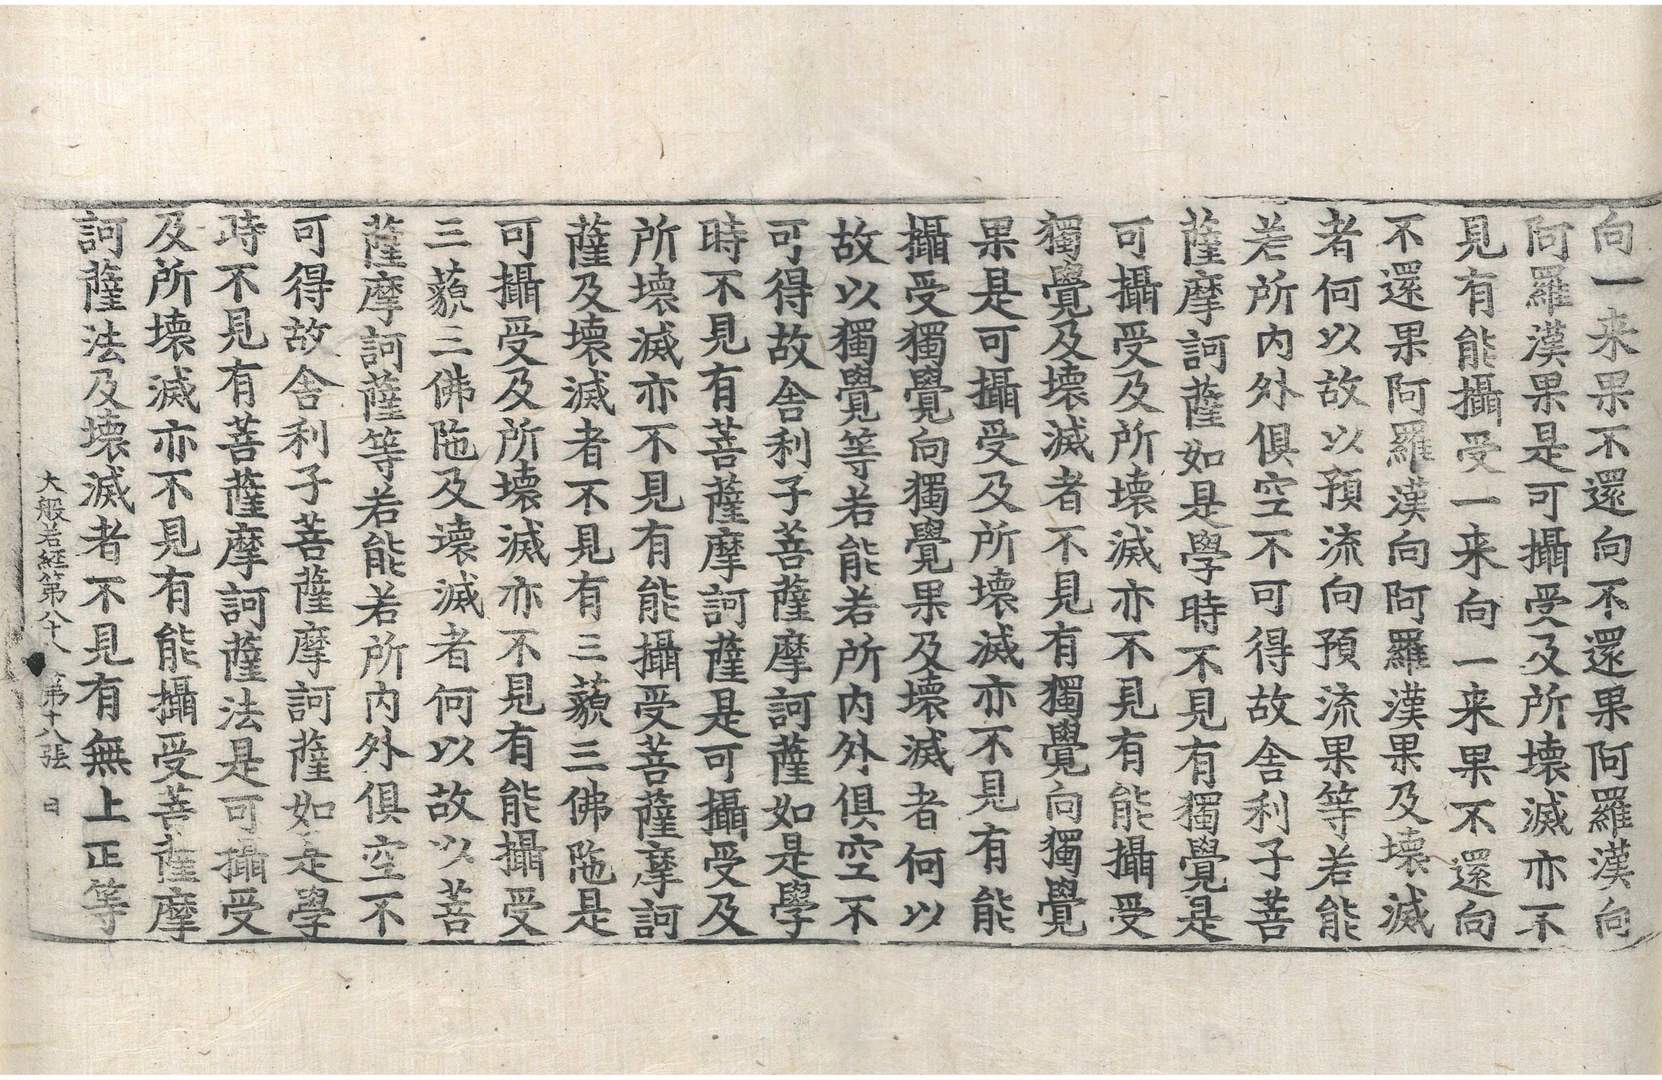 向一来果不還向不還果阿羅漢向
阿羅漢果是可攝受及所壞滅亦不
見有能攝受一来向一来果不還向
不還果阿羅漢向阿羅漢果及壞滅
者何以故以預流向預流果等若能
若所內外俱空不可得故舎利子菩
薩摩訶薩如是學時不見有獨覺是
可攝受及所壞滅亦不見有能攝受
獨覺及壞滅者不見有獨覺向獨覺
果是可攝受及所壞滅亦不見有能
攝受獨覺向獨覺果及壞滅者何以
故以獨覺等若能若所內外俱空不
可得故舎利子菩薩摩訶薩如是學
時不見有菩薩摩訶薩是可攝受及
所壞滅亦不見有能攝受菩薩摩訶
薩及壞滅者不見有三藐三佛陁是
可攝受及所壞滅亦不見有能攝受
三藐三佛陁及壞滅者何以故以菩
薩摩訶薩等若能若所內外俱空不
可得故舎利子菩薩摩訶薩如是學
時不見有菩薩摩訶薩法是可攝受
及所壞滅亦不見有能攝受菩薩摩
訶薩法及壞滅者不見有無上正等
大般若経第八十八 第十八張 日